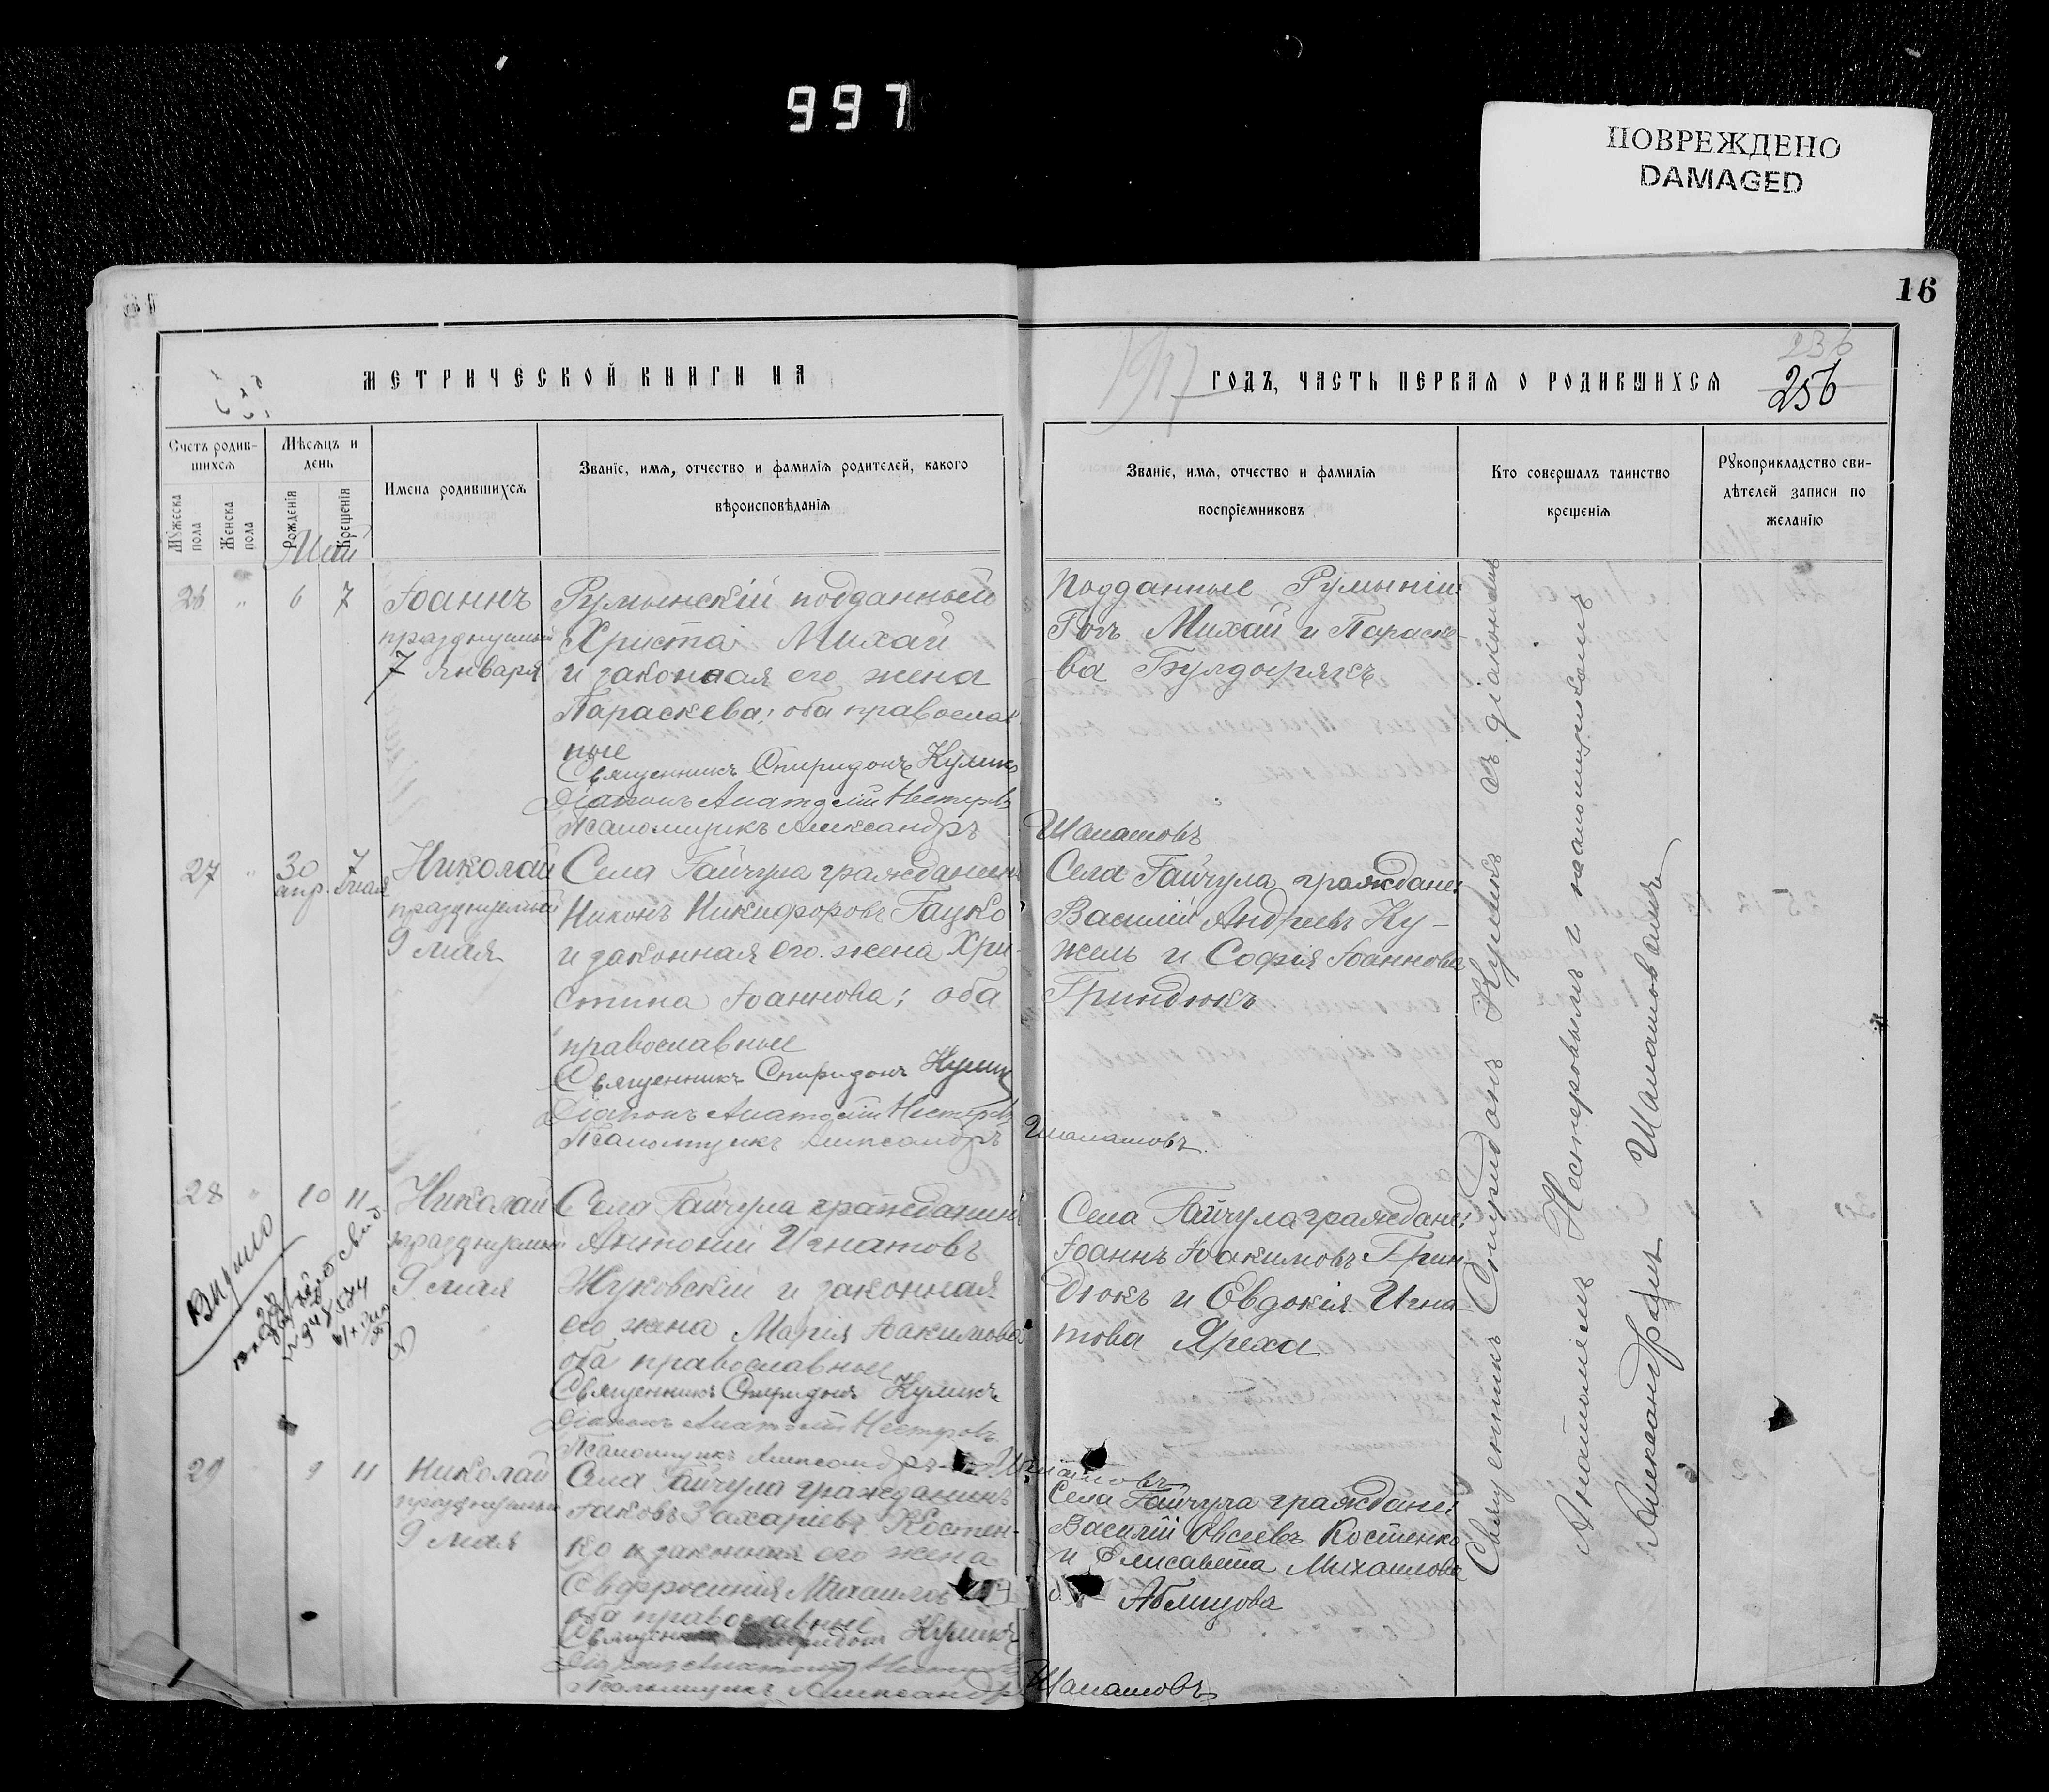 997
ПОВРЕЖДЕНО
DAMAGED
16
МЕТРИЧЕСКОЙ КНИГИ НА
1917 ГОДЪ, ЧАСТЬ ПЕРВАЯ О РОДИВШИХСЯ
236
256
Счетъ родив-
шихся
Мѣсяцъ и
день
Мужеска
пола
Женска
пола
Рожденія
Крещенія
Имена родившихся
Званіе, имя, отчество и фамилія родителей, какого
вѣроисповѣданія
Званіе, имя, отчество и фамилія
воспріемниковъ
Кто совершалъ таинство
крещенія
Рукоприкладство сви-
дѣтелей записи по
желанію
Май
26 " 6 7
Іоаннъ
празднуемый
7 января
Румынскій подданный
Христа Михай
и законная его жена
Параскева; оба православ
ные
Священникъ Спиридонъ Куликъ
Діаконъ Анатолій Нестеровъ
Псаломщикъ Александръ Шаматовъ
Подданные Румыніи:
Михай и Параске-
ва
27 " 30 апр. 7 мая
Николай
празднуемый
9 мая
Села Гайчула гражданинъ
Никонъ Никифоровъ Гацко
и законная его жена Хри-
стина Іоаннова; оба
православные
Священникъ Спиридонъ Куликъ
Діаконъ Анатолій Нестеровъ
Псаломщикъ Александръ Шаматовъ
Села Гайчула граждане:
Василій Андреевъ Ку-
жель и Софія Іоаннова
Гриндюкъ
28 " 10 11
Николай
празднуемый
9 мая
Видано
Села Гайчула гражданинъ
Антоній Игнатовъ
Жуковскій и законная
его жена Марія Іоакимова
оба православные
Священникъ Спиридонъ Куликъ
Діаконъ Анатолій Нестеровъ
Псаломщикъ Александръ Шаматовъ
Села Гайчула граждане:
Іоаннъ Іоакимовъ Грин-
дюкъ и Евдокія Игна
това Яреха
29 9 11
Николай
празднуемый
9 мая
Села Гайчула гражданинъ
Іаковъ Захаріевъ Костен-
ко и законная его жена
Евфросинія
оба православные
Священникъ Спиридонъ Куликъ
Діаконъ Анатолій Нестеровъ
Псаломщикъ Александръ Шаматовъ
Села Гайчула граждане:
Василій Овсеевъ Костенко
и Елисавета Михаилова
Аблицова
Священникъ Спиридонъ Куликъ съ діакономъ
Анатоліемъ Нестеровымъ и псаломщикомъ
Александромъ Шаматовымъ